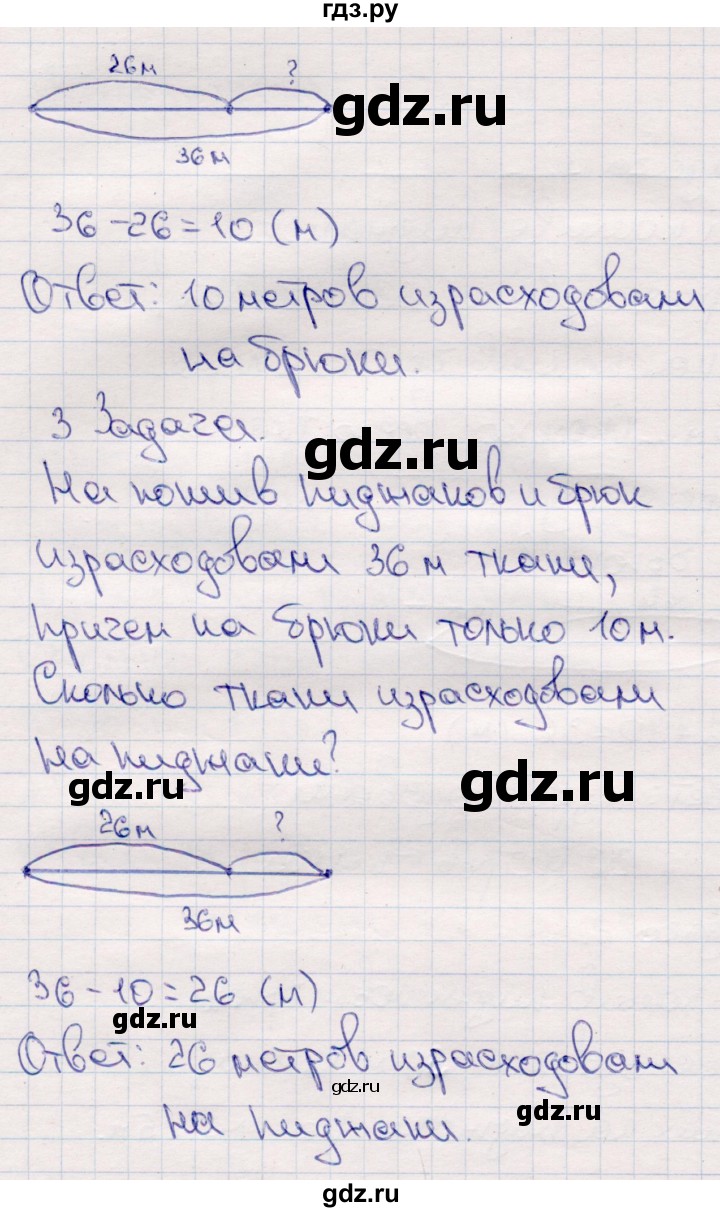 гдз.ру
26м ?
gdz.ru
36м
36-26=10 (м)
Ответ: 10 метров израсходовали
на брюки.
3 Задача.
gdz.ru
На пошив пиджаков и брюк
израсходовали 36 м ткани,
причем на брюки только 10 м.
Сколько ткани израсходовали
на пиджаки?
gdz.ru
gdz.ru
26м ?
36м
36-10=26 (м)
gdz.ru
Ответ: 26 метров израсходовали
gdz.ru
на пиджаки.
gdz.ru
gdz.ru